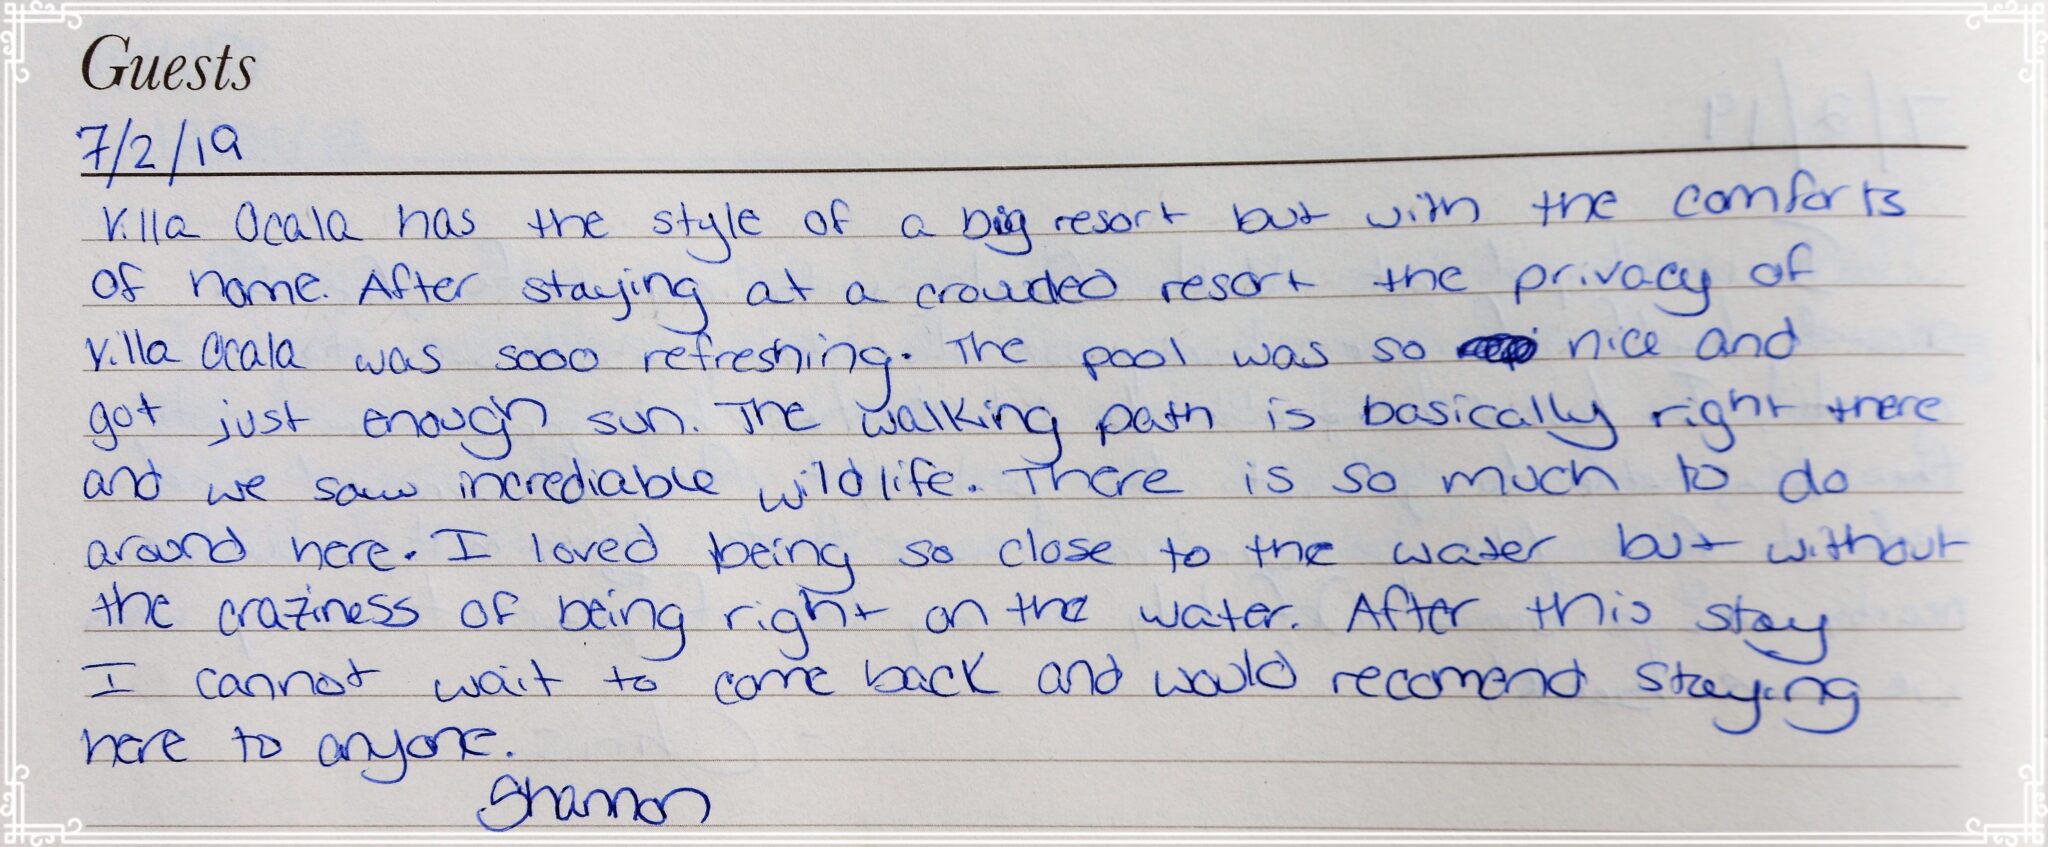 Guests
7/2/19
Villa Ocala has the style of a big resort but with the comforts
of home. After staying at a crowded resort the privacy of
Villa Ocala was sooo refreshing. The pool was so nice and
got just enough sun. The walking path is basically right there
and we saw incrediable wildlife. There is so much to do
around here. I loved being so close to the water but without
the craziness of being right on the water. After this stay
I cannot wait to come back and would recomend staying
here to anyone.
Shannon